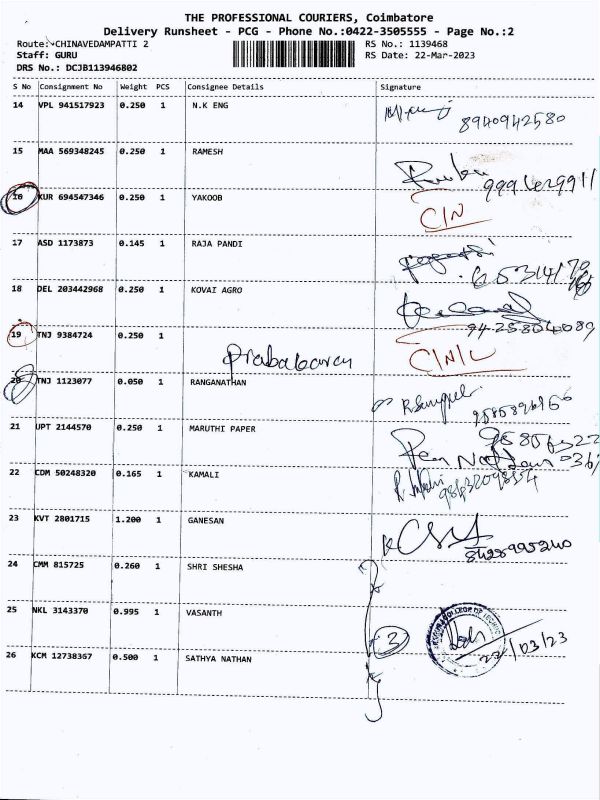 THE PROFESSIONAL COURIERS, Coimbatore
Delivery Runsheet - PCG - Phone No.:0422-3505555 - Page No.:2
Route: CHINAVEDAMPATTI 2 RS No.: 1139468
Staff: GURU RS Date: 22-Mar-2023
DRS No.: DCJB113946802
S No Consignment No Weight PCS Consignee Details Signature
14 VPL 941517923 0.250 1 N.K ENG
8940942580
15 MAA 569348245 0.250 1 RAMESH
16 KUR 694547346 0.250 1 YAKOOB C/N
17 ASD 1173873 0.145 1 RAJA PANDI
18 DEL 203442968 0.250 1 KOVAI AGRO
19 TNJ 9384724 0.250 1 C/N/L
Prabakaran
20 TNJ 1123077 0.050 1 RANGANATHAN
21 UPT 2144570 0.250 1 MARUTHI PAPER
22 CDM 50248320 0.165 1 KAMALI
23 KVT 2801715 1.200 1 GANESAN
8428995240
24 CMM 815725 0.260 1 SHRI SHESHA
25 NKL 3143370 0.995 1 VASANTH
3
22/03/23
26 KCM 12738367 0.500 1 SATHYA NATHAN